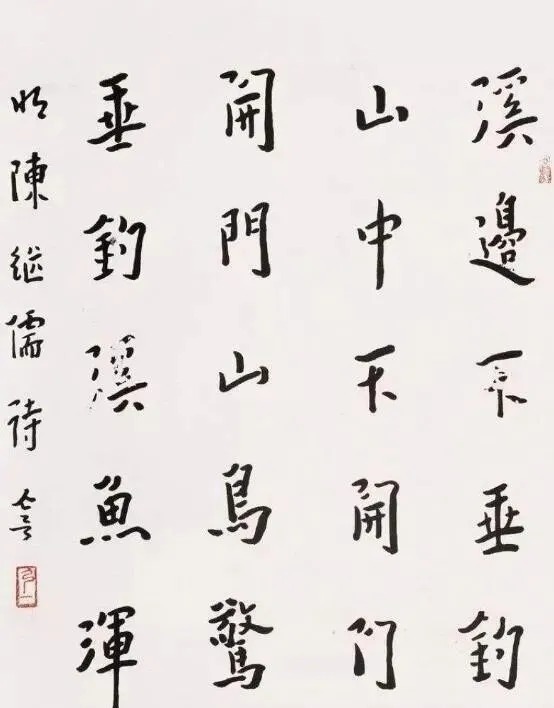 溪邊不垂釣
山中不開門
開門山鳥驚
垂釣溪魚渾
明陳继儒诗